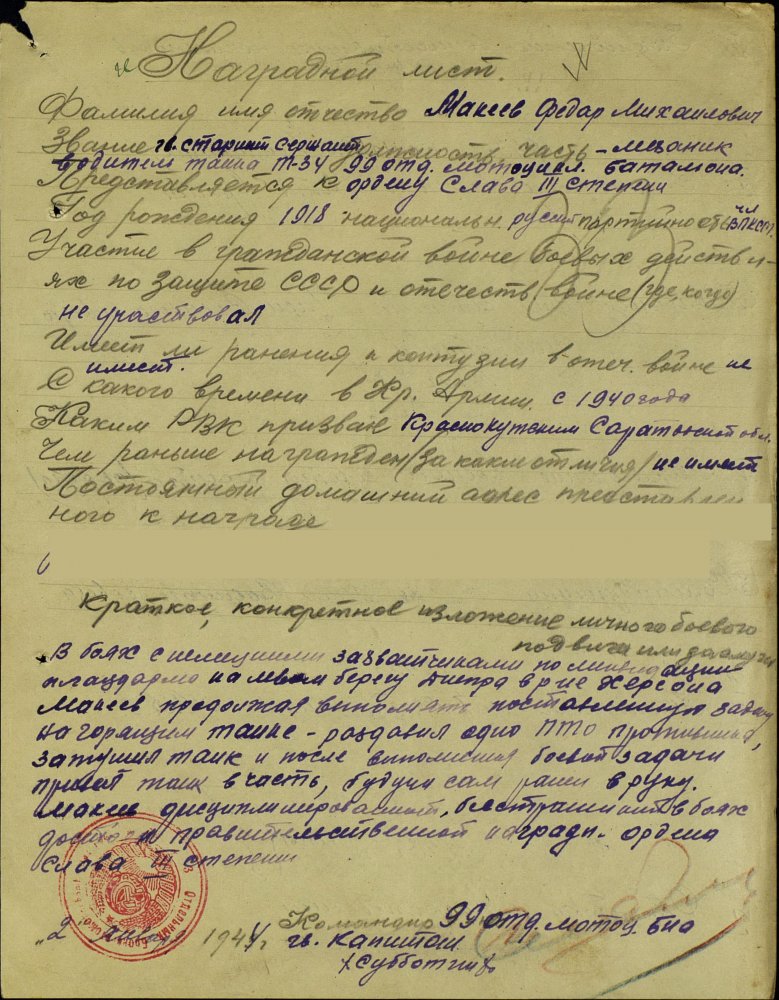 Наградной лист.
Фамилия имя отчество Макеев Федар Михаилович
Звание гв. старшит сержант должность, часть - механик
водитель танка Т-34 99 отд. мотоцикл. баталиона.
Представляется к ордену Слава III степени
Год рождения 1918 национальн. русск партийность чл ВЛКСМ
Участие в гражданской войне боевых действи-
ях по защите СССР и отечеств. войне (где, когда)
не участвовал
Имеет ли ранения и контузии в отеч. войне не
имеет.
С какого времени в Кр. Армии с 1940 года
Каким РВК призван Краснокутским Саратовской обл.
Чем раньше награжден (за какие отличия) не имеет
Постоянный домашний адрес представлен
ного к награде
Краткое, конкретное изложение личного боевого
подвига или
В боях с немецкими захватчиками по ликвидации
плацдарма на левом берегу Днепра в р-не Херсона
Макеев продолжая выполнять поставленную задачу
на горящим танке - раздавил одно ПТО противника,
затушил танк и после выполнения боевой задачи
привел танк в часть, будучи сам ранен в руку.
Макеев дисциплинирован, бесстрашен в боях
достоин правительственной награды - ордена
Слава III степени
"2" января 1944 г. Командир 99 отд. мотоц. б-на
гв. Капитан
/Субботин/